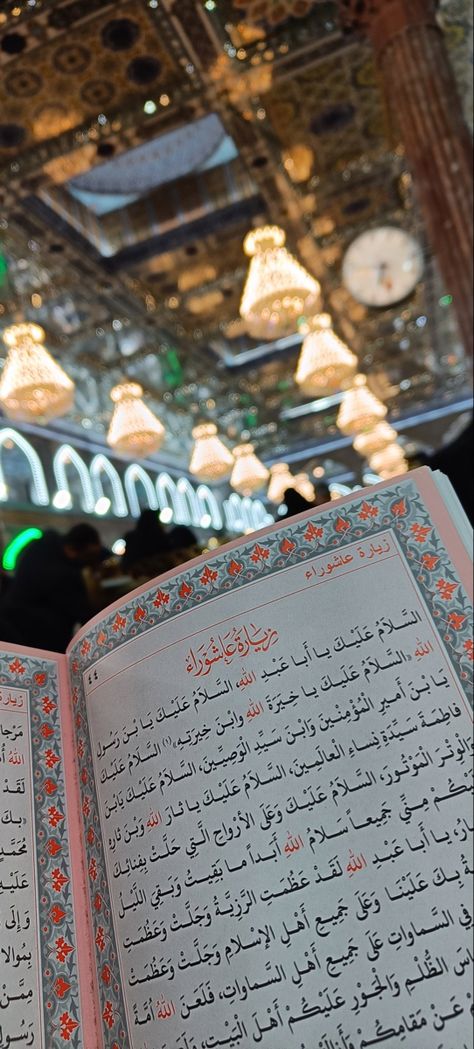 زيارة عاشوراء
٤٤
زيارة عاشوراء
السَّلَامُ عَلَيْكَ يَا أَبا عَبْدِ اللهِ، السَّلَامُ عَلَيْكَ يَا بْنَ رَسُولِ
اللهِ السَّلَامُ عَلَيْكَ يا خِيَرَةَ اللهِ وَابْنَ خِيَرَتِهِ (١) السَّلَامُ عَلَيْكَ
يَا بْنَ أَمِيرِ الْمُؤْمِنْيِنَ وَابْنَ سَيِّدِ الْوَصِيِّينَ، السَّلَامُ عَلَيْكَ يَابْنَ
فاطِمَةَ سَيِّدَةِ نِساءِ الْعالَمِينَ، السَّلَامُ عَلَيْكَ يا ثارَ اللهِ وَبْنَ ثارِهِ
الْوِتْرَ الْمَوْتُورَ، السَّلَامُ عَلَيْكَ وَعَلَى الْأَرْواحِ الَّتِي حَلَّتْ بِفِنائِكَ
مِنِّي جَمِيعاً سَلامُ اللهِ أَبَداً ما بَقِيتُ وَبَقِيَ اللَّيْلُ
يا أَبا عَبْدِ اللهِ لَقَدْ عَظُمَتِ الرَّزِيَّةُ وَجَلَّتْ وَعَظُمَتِ
بِكَ عَلَيْنا وَعَلَى جَمِيعِ أَهْلِ الإِسْلامِ وَجَلَّتْ وَعَظُمَتْ
السَّماواتِ عَلَى جَمِيعِ أَهْلِ السَّماواتِ، فَلَعَنَ اللهُ أُمَّةً
الظُّلْمِ وَالْجَوْرِ عَلَيْكُمْ أَهْلَ الْبَيْتِ،
عَنْ مَقامِكُمْ
زيارة
اللهُ
لَقَدْ
بِكَ
عَلَيْهِ
وَإِلَى
مِمَّنْ
رَسُولِ